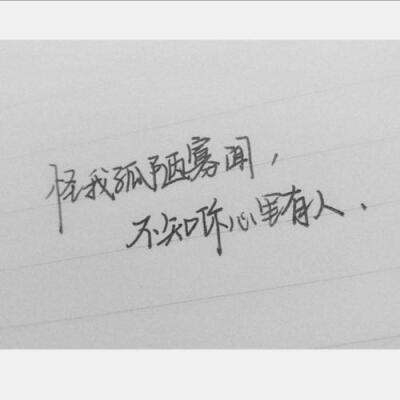 怪我孤陋寡闻，
不知你心里有人.